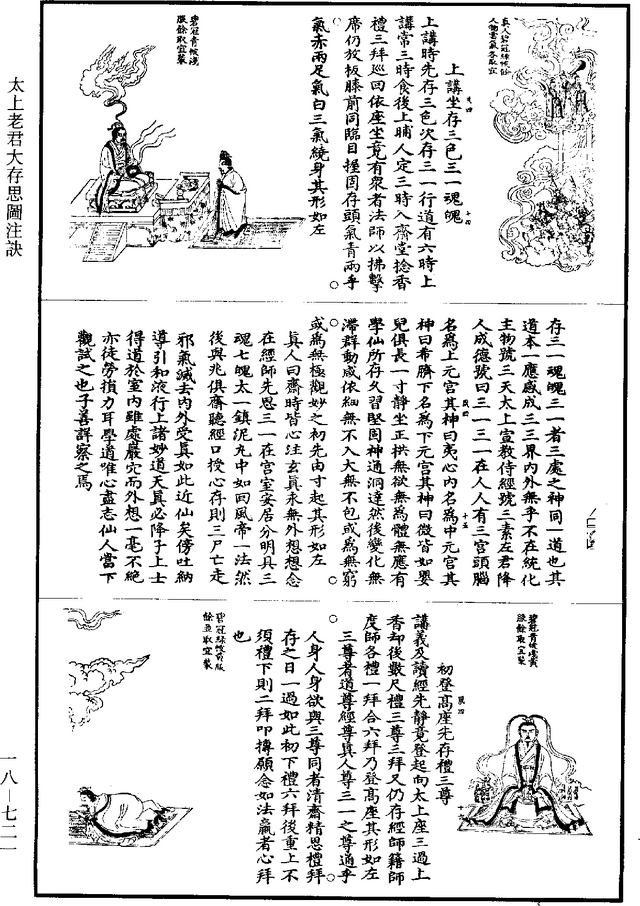 太上老君大存思圖注訣
真人碧冠綠帔餘
人物雲氣各取宜
上講坐存三色三一魂魄
上講時先存三色次存三一行道有六時上
講常三時食後上晡人定三時入齋堂捻香
禮三拜巡回依座坐竟有衆者法師以拂擊
席仍放板膝前同臨目握固存頭氣青兩手
氣赤兩足氣白三氣繞身其形如左
碧冠青帔淺
服餘取宜裝
存三一魂魄三一者三處之神同一道也其
道本一應感成三三界內外無乎不在統化
主物號三天太上宣教侍經號三素左君降
人成德號曰三一三一在人人有三宮頭腦
名爲上元宮其神曰夷心內名爲中元宮其
神曰希臍下名爲下元宮其神曰微皆如嬰
兒俱長一寸靜坐正拱無欲無爲體無應有
學仙所存久習堅固神通洞達然後變化無
滯群動咸依細無不入大無不包或爲無窮
或爲無極觀妙之初先由寸起其形如左
真人曰齋時皆心注玄真永無外想想念
在經師先思三一在宮室安居分明具三
魂七魄太一鎮泥丸中如回風帝一法然
後與兆俱齋聽經口授心存則三尸亡走
邪氣滅去內外受真如此近仙矣傍吐納
導引和液行上諸妙道天真必降子上士
得道於室內雖處巖穴而外想一毫不絕
亦徒勞損力耳學道唯心盡志仙人當下
觀試之也子善詳察之焉
碧冠青帔黃
服餘取宜裝
初登高座先存禮三尊
講義及讀經先靜竟登起向太上座三過上
香却後數尺禮三尊三拜又仍存經師籍師
度師各禮一拜合六拜乃登高座其形如左
三尊者道尊經尊真人尊三一之尊道乎
人身人身欲與三尊同者清齋精思禮拜
存之日一過如此初下禮六拜後重上不
須禮下則二拜叩搏願念如法羸者心拜
也
碧冠綠帔黃服
餘並取宜裝
一八—七二一